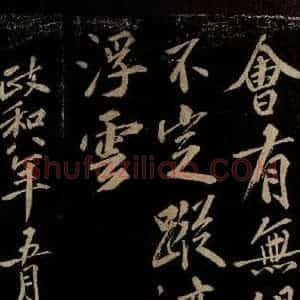 會有無
不定蹤
浮雲
政和八年五月
Shufaziliao.com